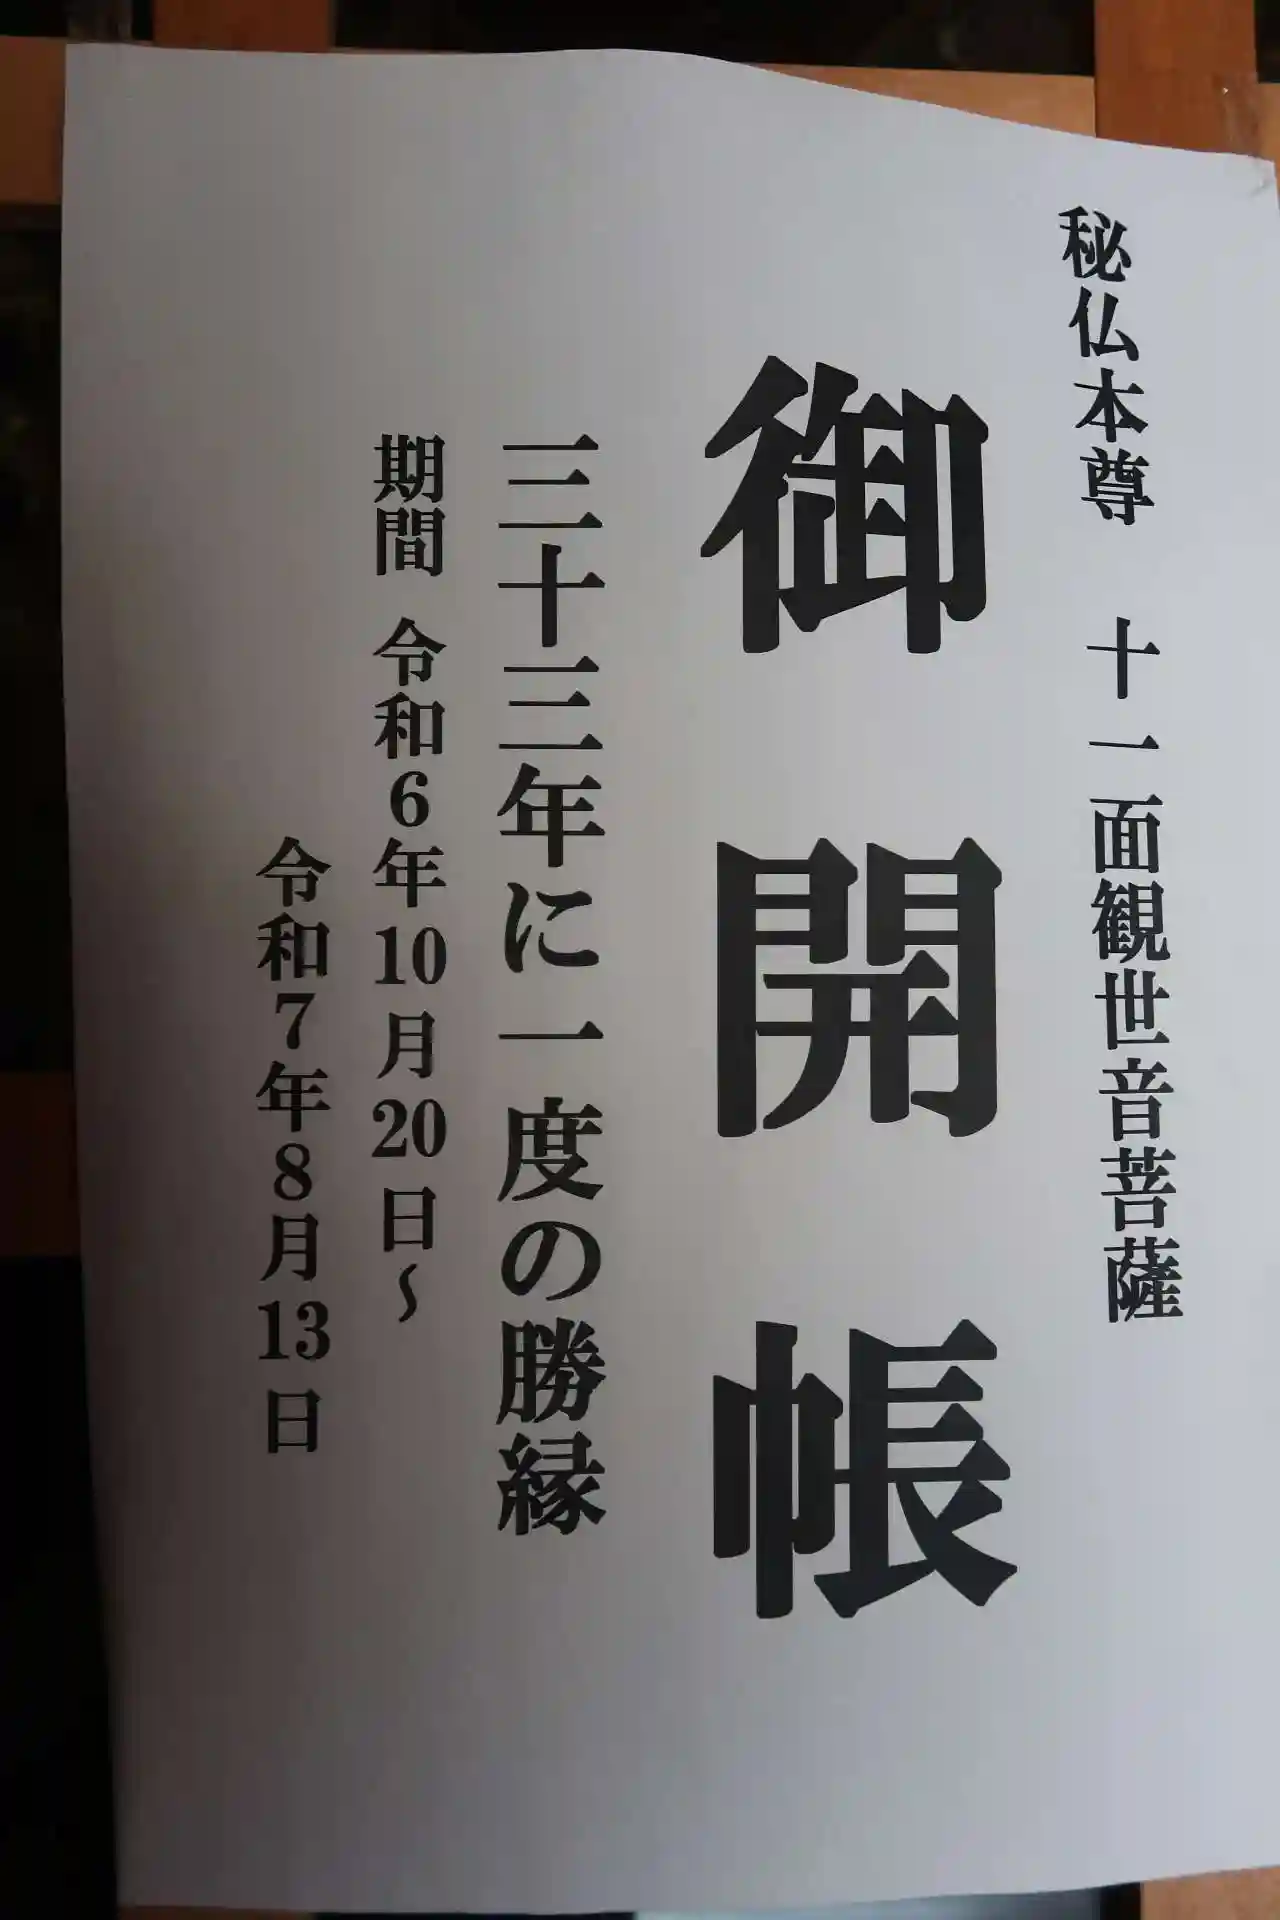 秘仏本尊 十一面観世音菩薩
御開帳
三十三年に一度の勝縁
期間 令和6年10月20日~
令和7年8月13日